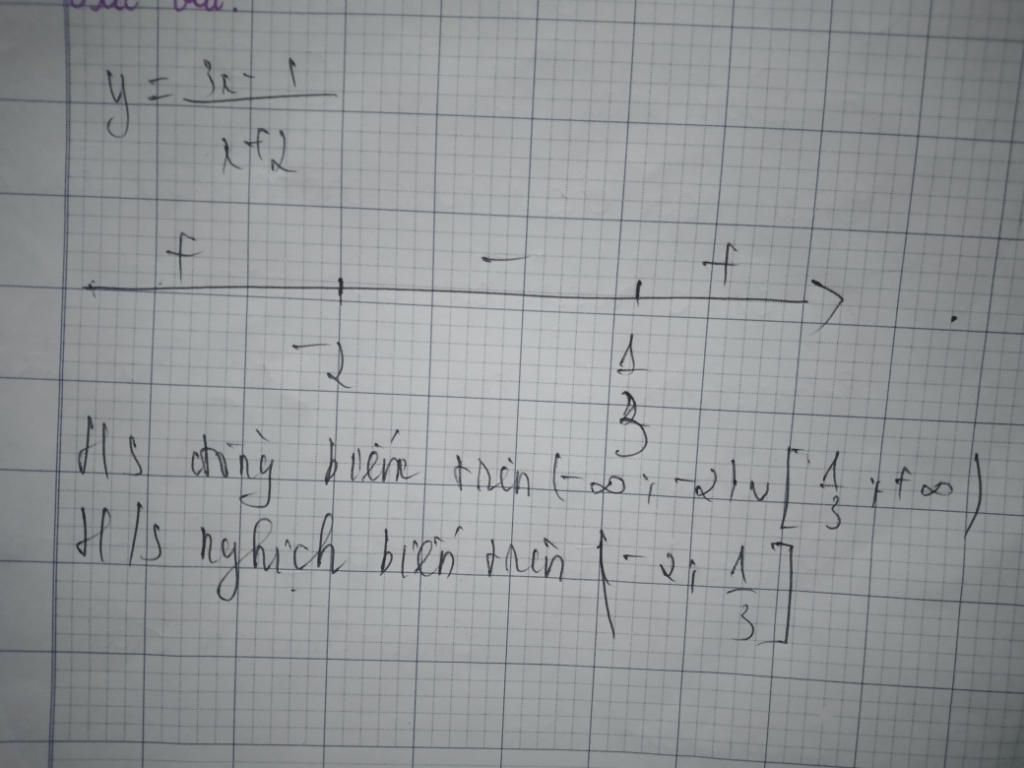 y = \frac{3x - 1}{x + 2}
+ - +
-2 \frac{1}{3}
H/s đồng biến trên (-∞; -2) ∪ [\frac{1}{3}; +∞)
H/s nghịch biến trên (-2; \frac{1}{3}]